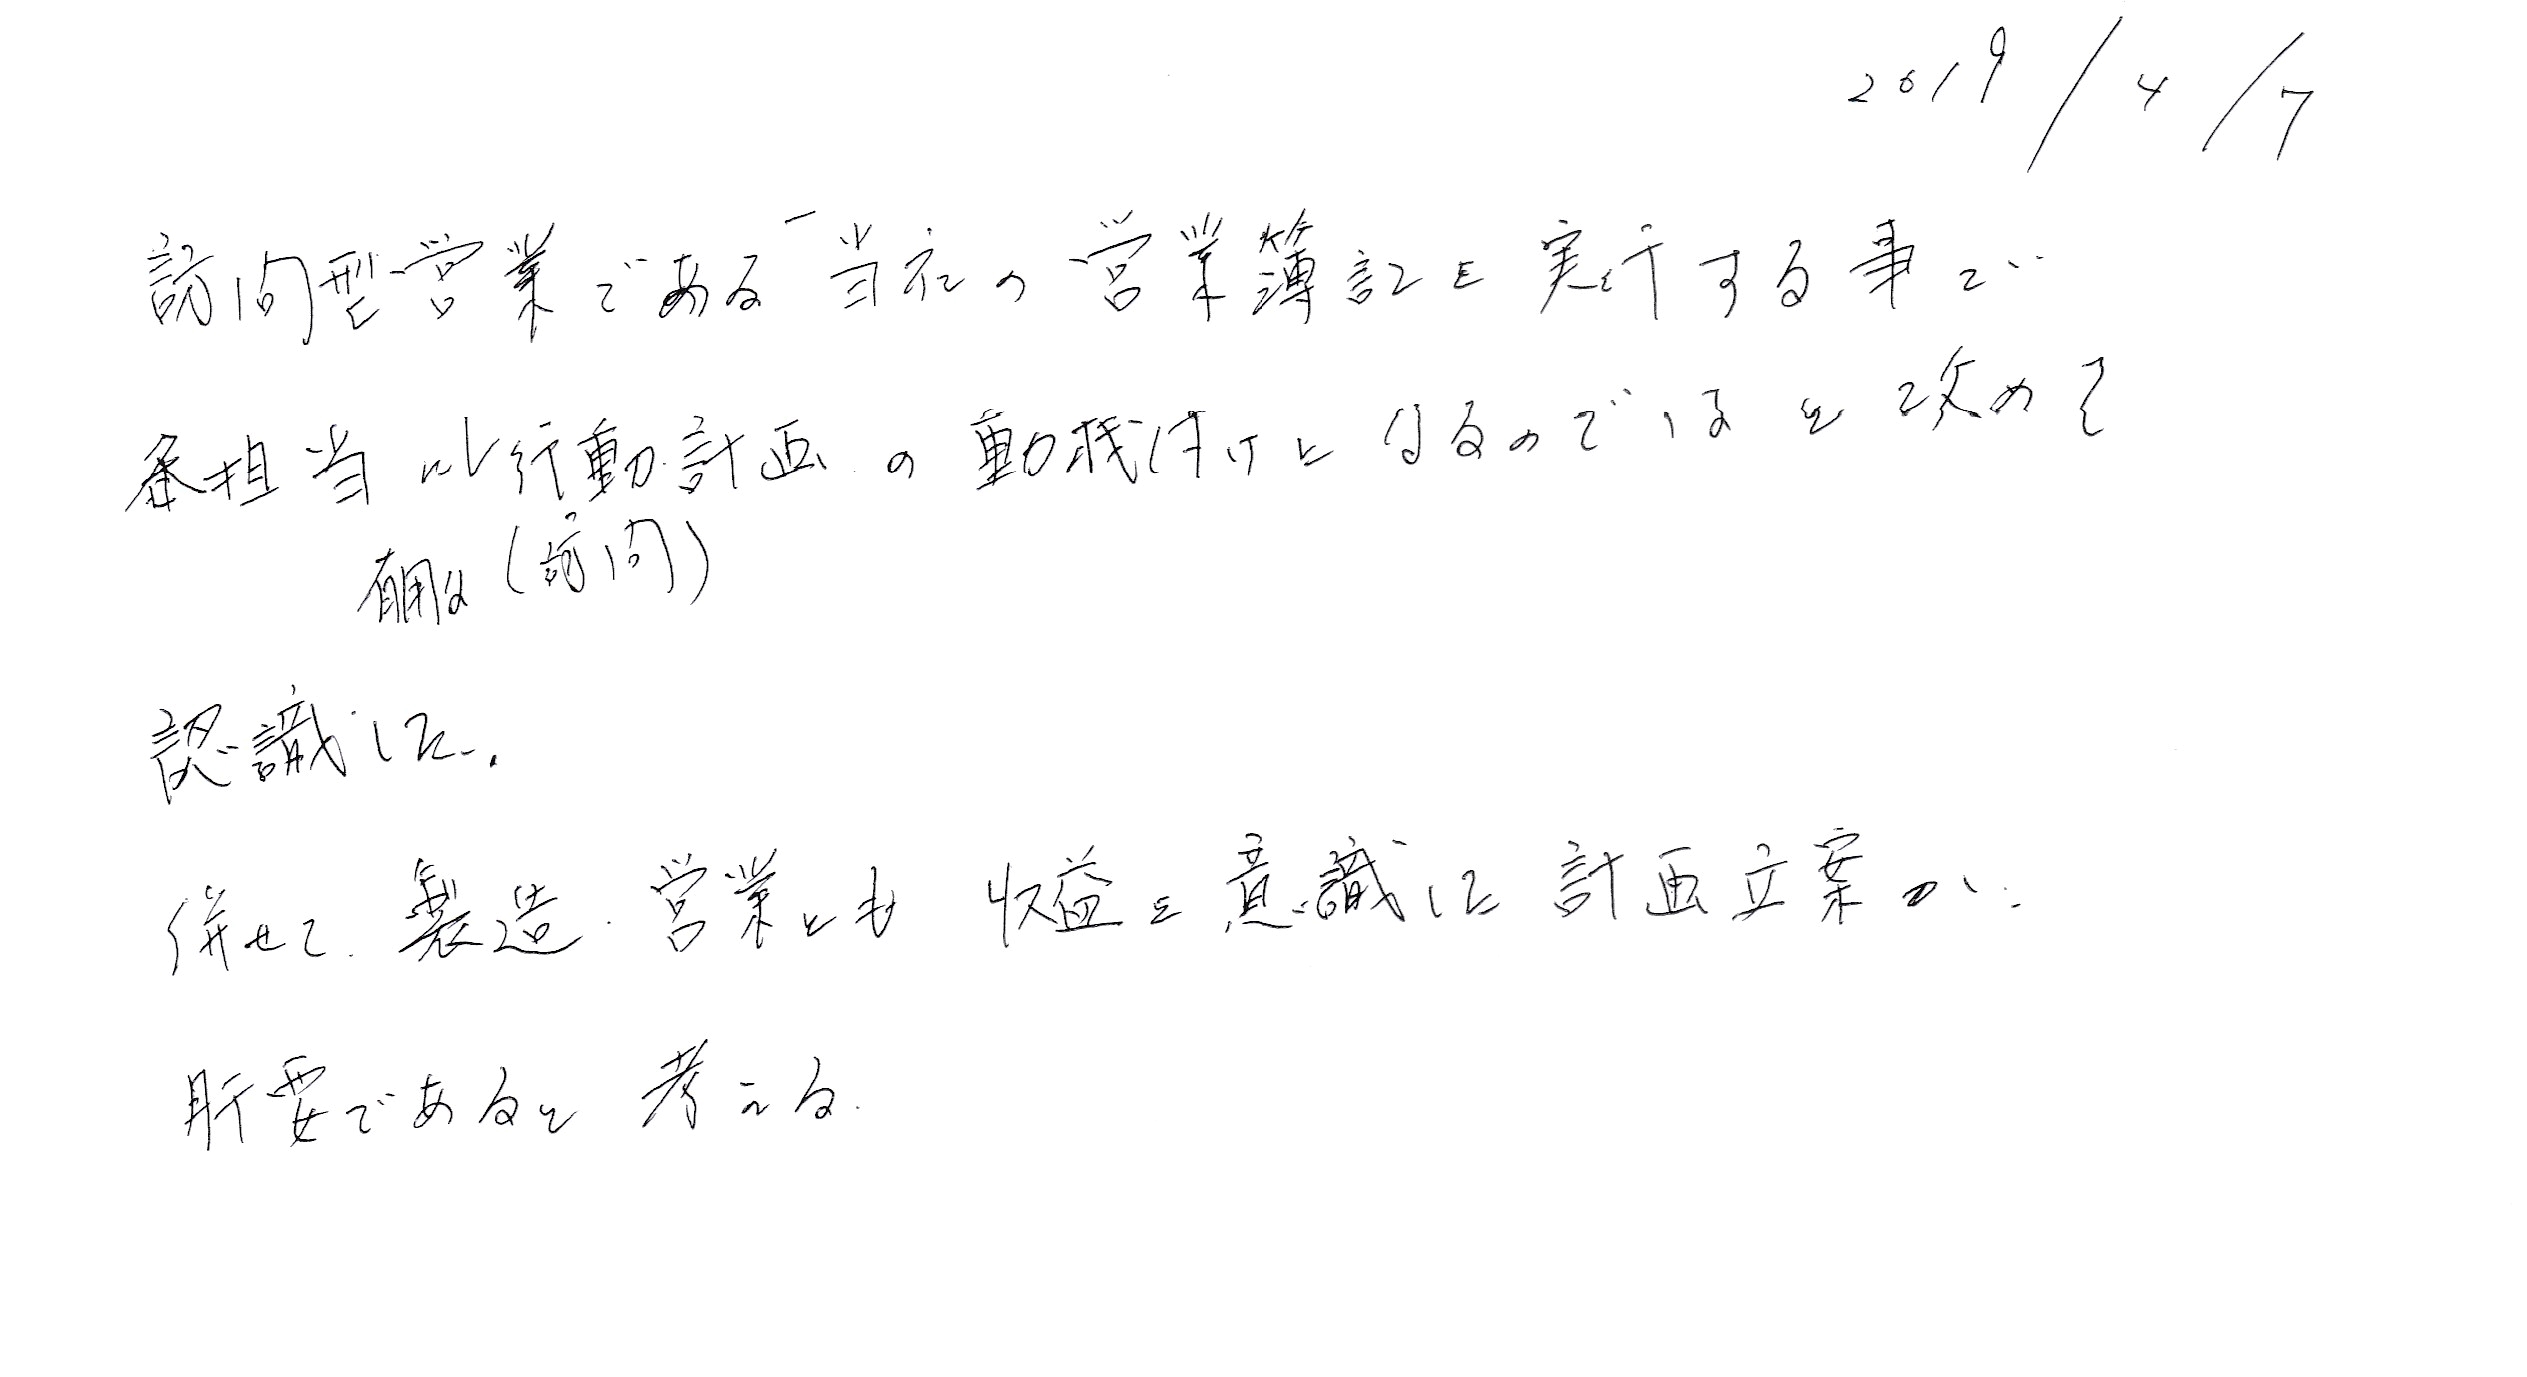 2019/4/7
訪問型営業である 当社の営業簿記を実行する事で
各担当 行動計画の動機付けとなるのでいるを改めて
有用な(訪問)
認識した.
併せて.製造.営業とも 収益を意識した計画立案が.
肝要であると考える.